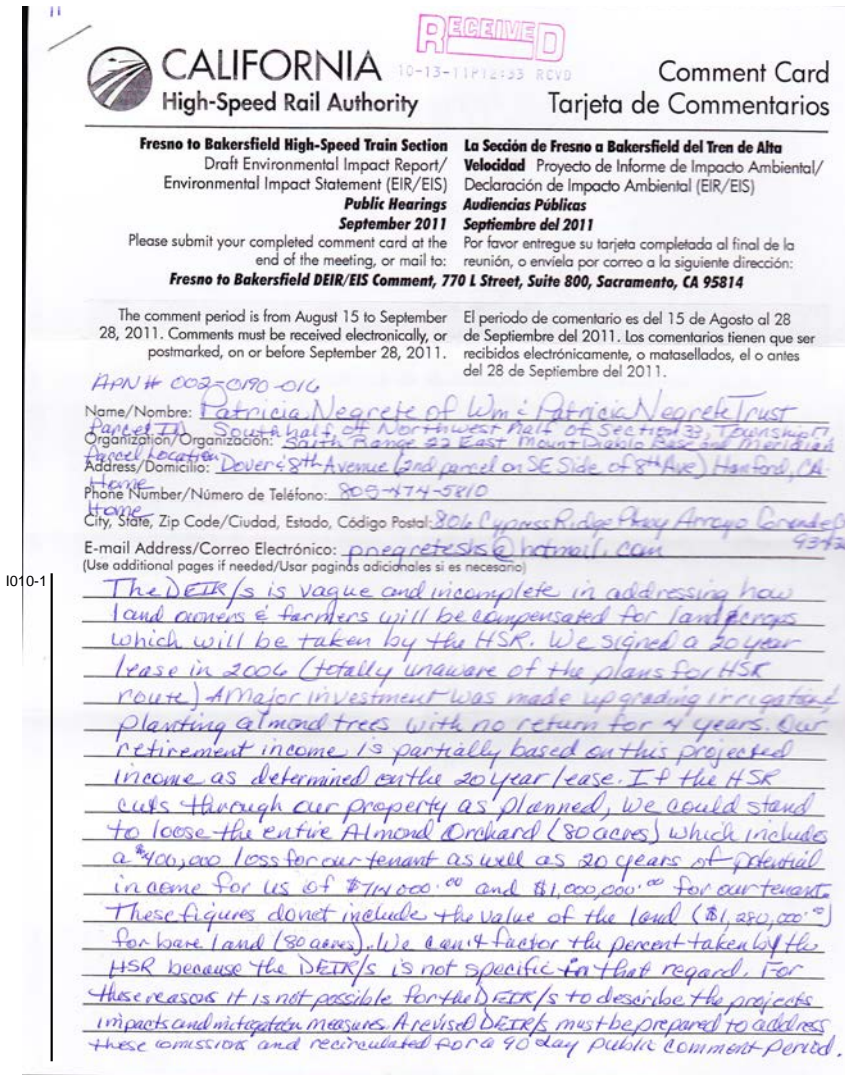 11
RECEIVED
10-13-11P12:33 RCVD
CALIFORNIA
High-Speed Rail Authority
Comment Card
Tarjeta de Commentarios
Fresno to Bakersfield High-Speed Train Section
Draft Environmental Impact Report/
Environmental Impact Statement (EIR/EIS)
Public Hearings
September 2011
Please submit your completed comment card at the
end of the meeting, or mail to:
La Sección de Fresno a Bakersfield del Tren de Alta
Velocidad Proyecto de Informe de Impacto Ambiental/
Declaración de Impacto Ambiental (EIR/EIS)
Audiencias Públicas
Septiembre del 2011
Por favor entregue su tarjeta completada al final de la
reunión, o envíela por correo a la siguiente dirección:
Fresno to Bakersfield DEIR/EIS Comment, 770 L Street, Suite 800, Sacramento, CA 95814
The comment period is from August 15 to September
28, 2011. Comments must be received electronically, or
postmarked, on or before September 28, 2011.
El periodo de comentario es del 15 de Agosto al 28
de Septiembre del 2011. Los comentarios tienen que ser
recibidos electrónicamente, o matasellados, el o antes
del 28 de Septiembre del 2011.
APN# 002-0190-016
Name/Nombre: Patricia Negrete of Wm & Patricia Negrete Trust
Parcel ID South half of Northwest Half of Section 33, Township 17
Organization/Organización: South Range 22 East Mount Diablo Base and Meridian
Parcel Location
Address/Domicilio: Dover & 8th Avenue (2nd parcel on SE Side of 8th Ave) Hanford, CA
Home
Phone Number/Número de Teléfono: 805-474-5810
Home
City, State, Zip Code/Ciudad, Estado, Código Postal: 806 Cypress Ridge Pkwy Arroyo Grande
9342
E-mail Address/Correo Electrónico: pnegretesls@hotmail.com
(Use additional pages if needed/Usar paginas adicionales si es necesario)
I010-1
The DEIR/s is vague and incomplete in addressing how
land owners & farmers will be compensated for land & crops
which will be taken by the HSR. We signed a 20 year
lease in 2006 (totally unaware of the plans for HSR
route) A major investment was made upgrading irrigation &
planting almond trees with no return for 4 years. Our
retirement income is partially based on this projected
income as determined on the 20 year lease. If the HSR
cuts through our property as planned, we could stand
to loose the entire Almond Orchard (80 acres) which includes
a $400,000 loss for our tenant as well as 20 years of potential
income for us of and $1,000,000.00 for our tenant.
These figures do not include the value of the land ($1,280,000.00)
for bare land (80 acres). We can't factor the percent taken by the
HSR because the DEIR/s is not specific in that regard. For
these reasons it is not possible for the DEIR/s to describe the projects
impacts and mitigation measures. A revised DEIR/s must be prepared to address
these omissions and recirculated for a 90 day public comment period.